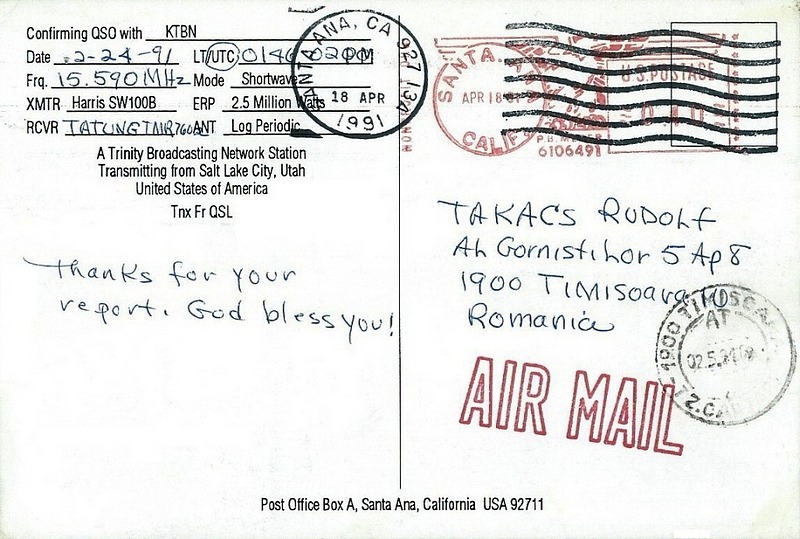 Confirming QSO with KTBN
Date 2-24-91 LT/UTC 0146 0200
Frq. 15.590 MHz Mode Shortwave
XMTR Harris SW100B ERP 2.5 Million Watts
RCVR TATUNG ANT Log Periodic
A Trinity Broadcasting Network Station
Transmitting from Salt Lake City, Utah
United States of America
Tnx Fr QSL
Thanks for your
report. God bless you!
SANTA ANA, CA 927
18 APR
1991
SANTA ANA
APR 18
CALIF
U.S. POSTAGE
P.B. METER
6106491
TAKACS RUDOLF
Al. Gornistilor 5 Ap 8
1900 TIMISOARA
Romania
1900 TIMISOARA
AT
02.5.91
AIR MAIL
Post Office Box A, Santa Ana, California USA 92711